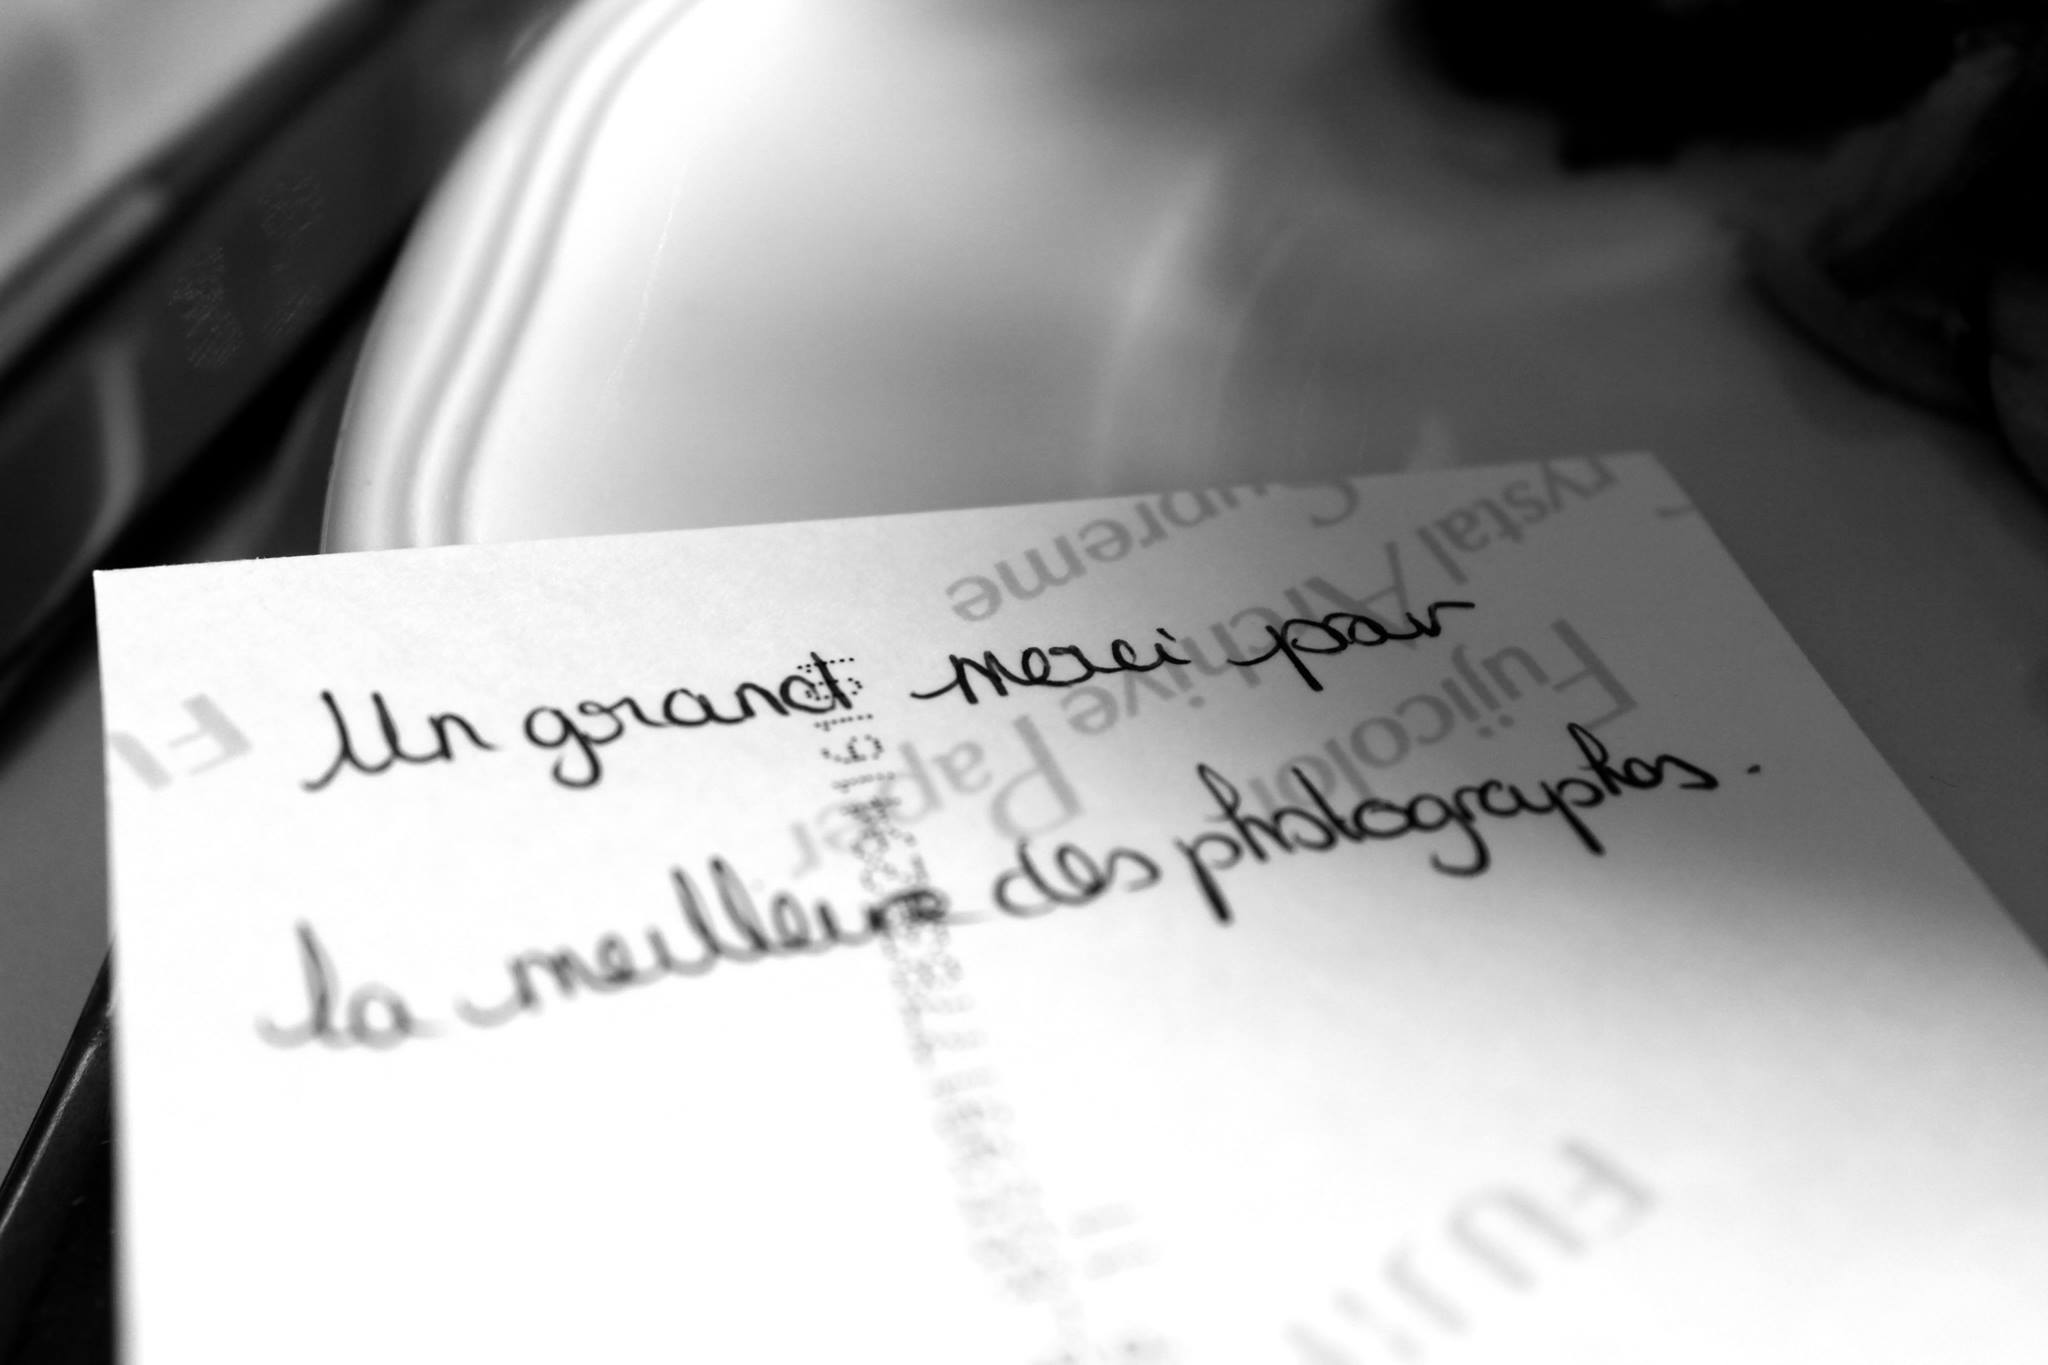 Un grand merci par
la meilleure des photographes.
Fujicolor
Crystal Archive
Paper
Supreme
FUJI